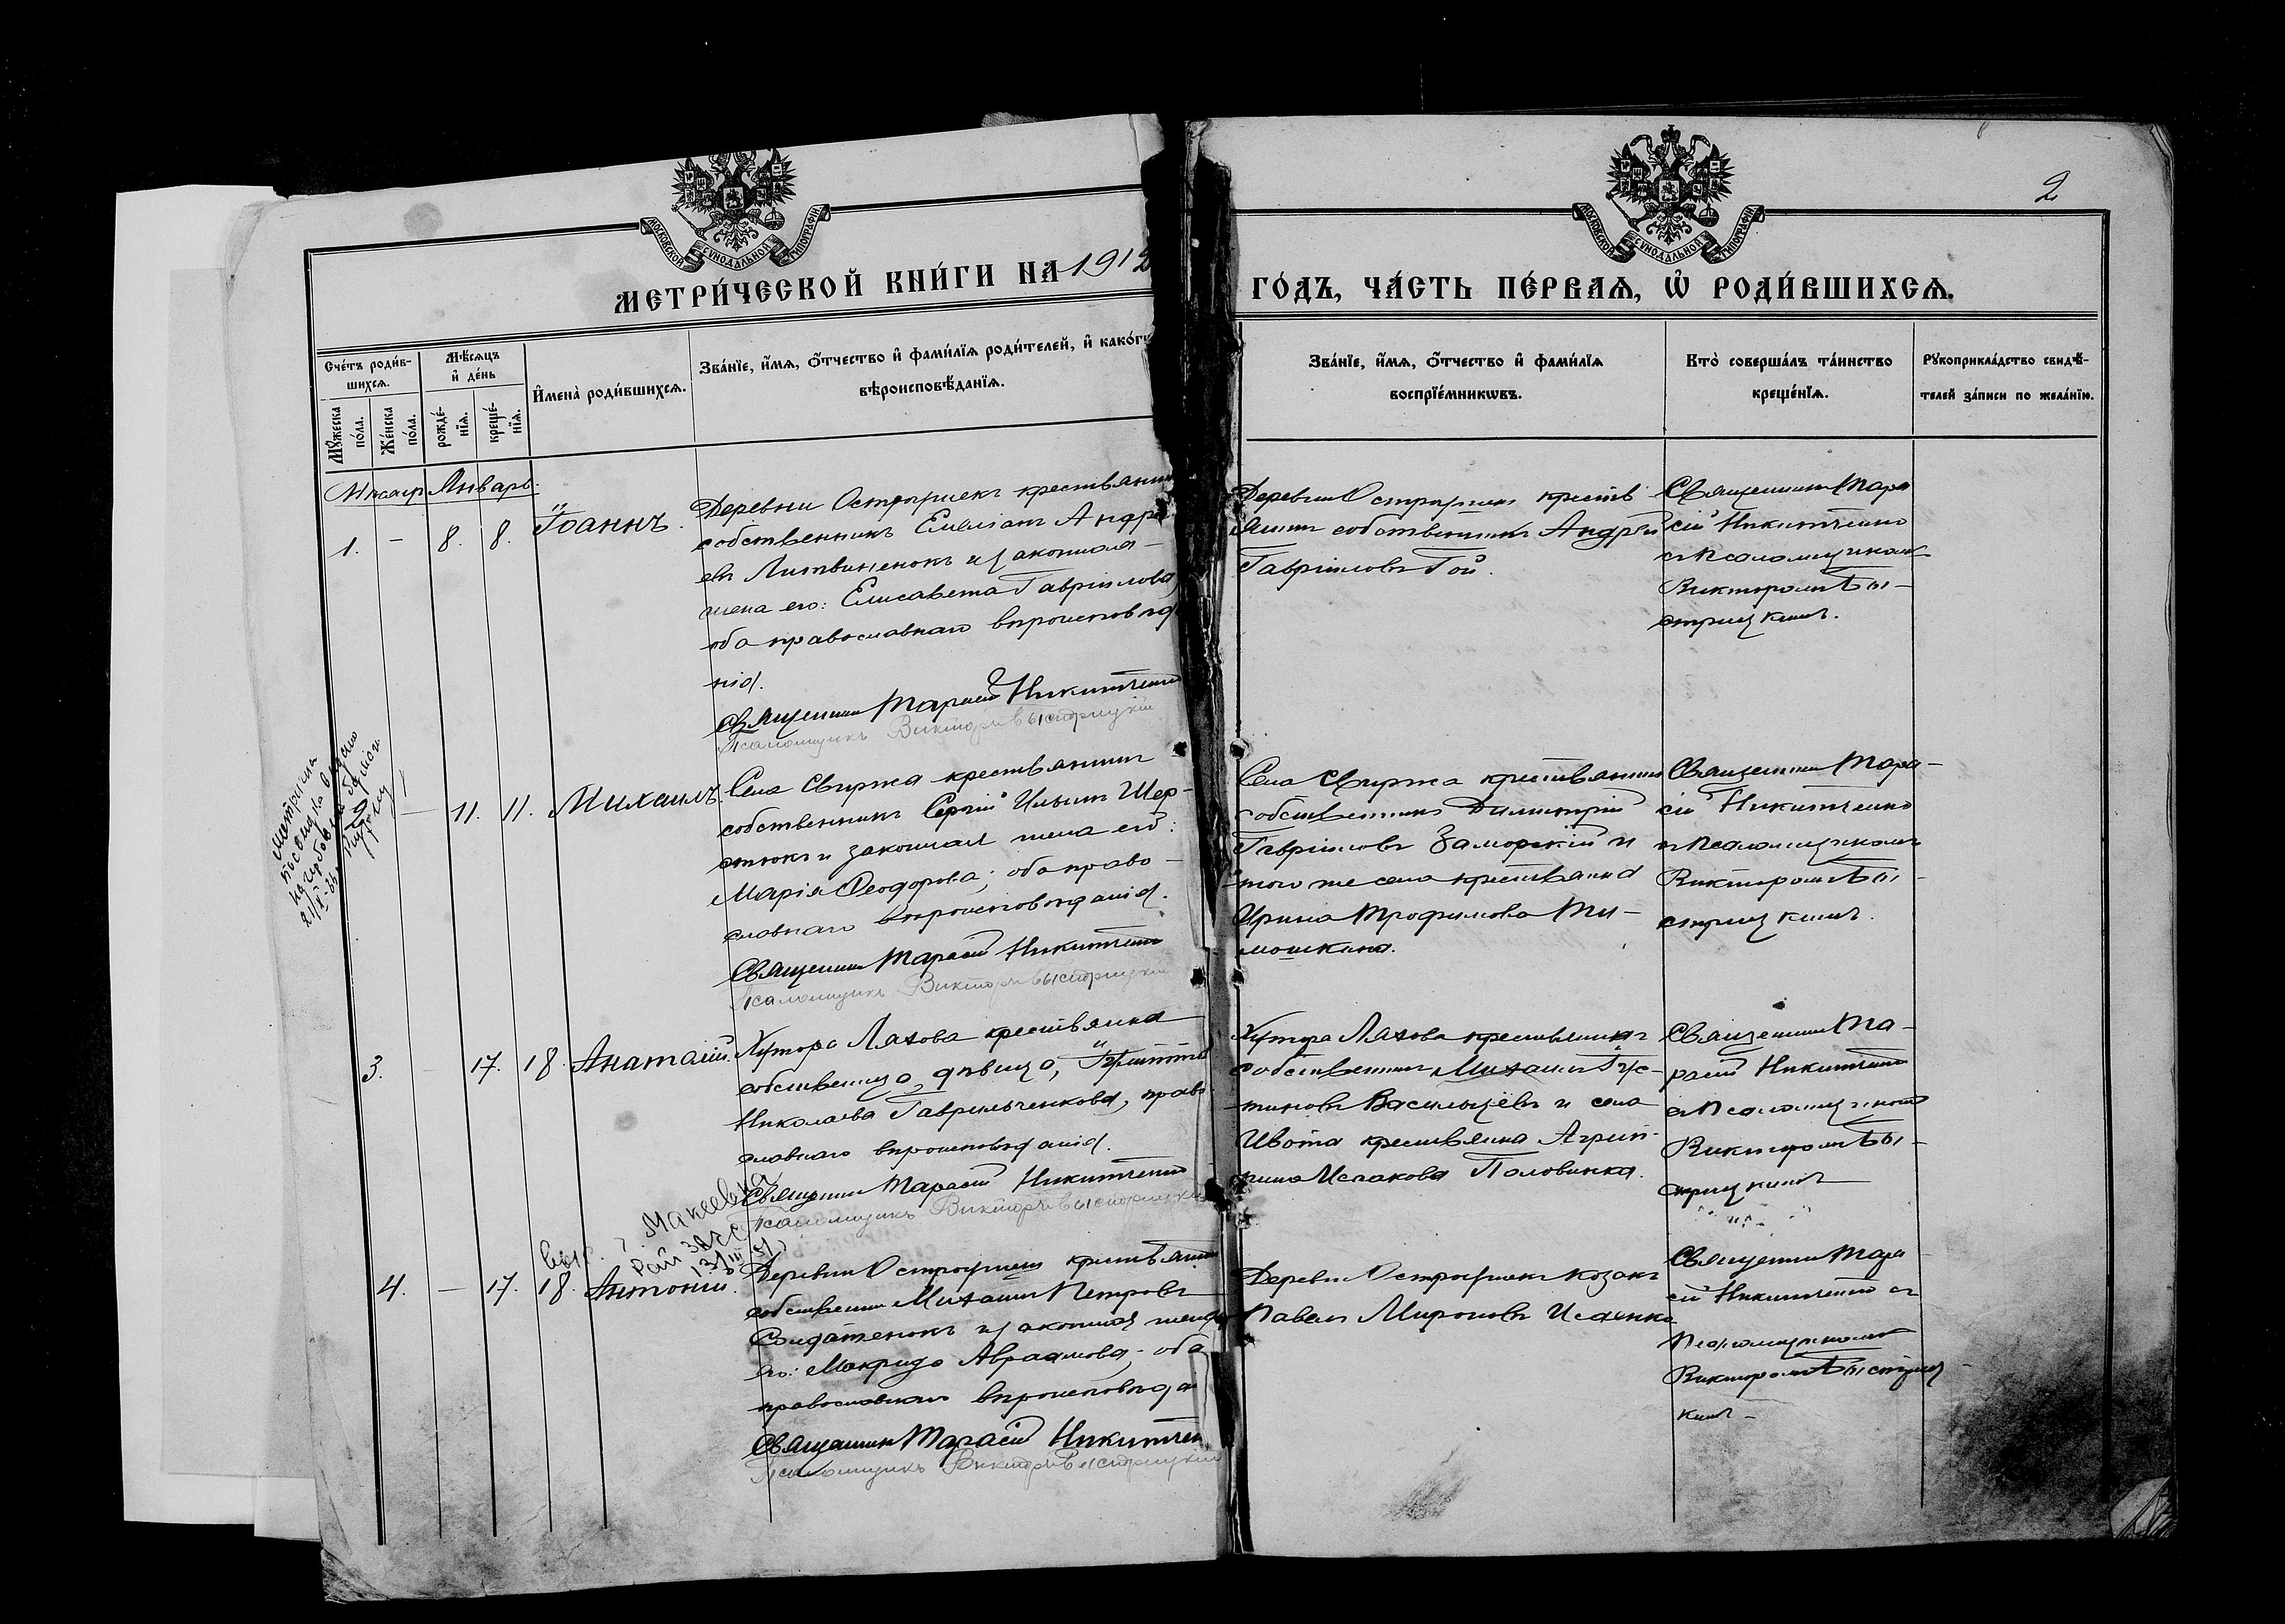 2
МОСКОВСКОЙ СѴНОДАЛЬНОЙ ТИПОГРАФІИ
МОСКОВСКОЙ СѴНОДАЛЬНОЙ ТИПОГРАФІИ
МЕТРИ́ЧЕСКОЙ КНИ́ГИ НА 1912
ГО́ДЪ, ЧА́СТЬ ПЕ́РВАЯ, Ѡ҆ РОДИ́ВШИХСЯ.
Сче́тъ роди́в-
шихся.
Мѣ́сяцъ
и҆ де́нь
Мꙋ́жеска
по́ла.
Же́нска
по́ла.
рожде́-
нїя.
креще́-
нїя.
И҆мена̀ роди́вшихся.
Зва́нїе, и҆́мя, ѻ҆́тчество и҆ фами́лїя роди́телей, и҆ како́гѡ
вѣроисповѣ́данїя.
Зва́нїе, и҆́мя, ѻ҆́тчество и҆ фами́лїя
воспрїе́мникѡвъ.
Кто̀ соверша́лъ та́инство
креще́нїя.
Рꙋкоприкла́дство свидѣ́-
телей за́писи по жела́нїю.
Январь.
1. - 8. 8. Іоаннъ.
Деревни Остроушекъ крестьянинъ
собственникъ Емеліанъ Андре
евъ Литвиненокъ и законная
жена его: Елисавета Гавріилова,
оба православнаго вѣроисповѣда
нія.
Священникъ Тарасій Никитченко
Псаломщикъ Викторъ Быстрицкій
Деревни Остроушекъ кресть
янинъ собственникъ Андрей
Гавріиловъ Гой.
Священникъ Тара
сій Никитченко
съ псаломщикомъ
Викторомъ Бы-
стрицкимъ.
21/X-
2 - 11. 11. Михаилъ.
Села Свиржа крестьянинъ
собственникъ Сергій Ильинъ Шер-
стюкъ и законная жена его:
Марія Ѳеодорова; оба право-
славнаго вѣроисповѣданія.
Священникъ Тарасій Никитченко
Псаломщикъ Викторъ Быстрицкій
Села Свиржа крестьянинъ
собственникъ Димитрій
Гавріиловъ Заморскій и
того же села крестьянка
Ирина Трофимова Ти-
мошкина.
Священникъ Тара-
сій Никитченко
съ псаломщикомъ
Викторомъ Бы-
стрицкимъ.
3. - 17. 18 Анатолій.
Хутора Лахова крестьянка
собственница, дѣвица,
Николаева Гаврильченкова, право
славнаго вѣроисповѣданія.
Священникъ Тарасій Никитченко
Псаломщикъ Викторъ Быстрицкій
Хутора Лахова крестьянинъ
собственникъ Михаилъ Іус-
тиновъ Васильцевъ и села
Ивота крестьянка Агрип-
пина Исаакова Половинка.
Священникъ Та-
расій Никитченко
съ псаломщикомъ
Викторомъ Бы-
стрицкимъ
Макеевка
ЗАГС
4. - 17. 18. Антоній.
Деревни Остроушекъ крестьянинъ
собственникъ Михаилъ Петровъ
Солдатенокъ и законная жена
его: Макрида Авраамова; оба
православнаго вѣроисповѣда
Священникъ Тарасій Никитчен
Псаломщикъ Викторъ Быстрицкій
Деревни Остроушекъ козакъ
Павелъ Мироновъ Исаенко
Священникъ Тара
сій Никитченко съ
псаломщикомъ
Викторомъ Быстриц-
кимъ